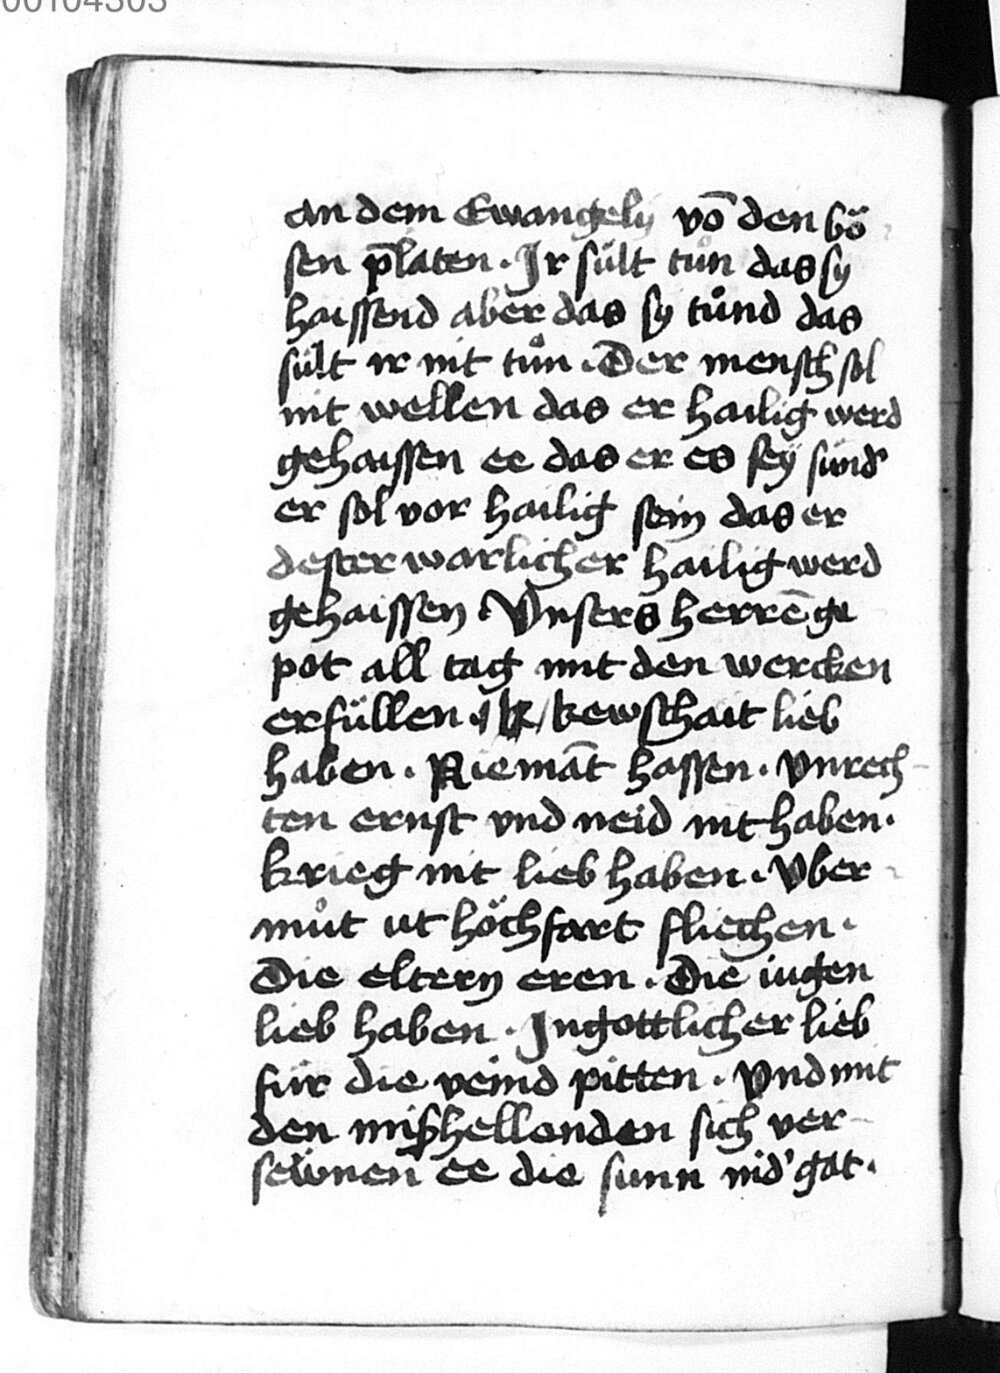 00104303
an dem Ewangelij vō den bö
sen p̄laten . Ir sült tůn das sy
haissend aber das sy tůnd das
sült ir nit tůn . Der mensch sol
nit wellen das er hailig werd
gehaissen ee das er es seÿ sund'
er sol vor hailig sein das er
dester warlicher hailig werd
gehaissen . Vnsers herrē ge
pot all tag mit den wercken
erfüllen . kewschait lieb
haben . Niemāt hassen . Vnrech-
ten ernst vnd neid nit haben .
krieg nit lieb haben . Vber-
můt vt höchfart fliechen .
Die eltern eren . Die iugen
lieb haben . In gottlicher lieb
für die veind pitten . Vnd mit
den mißhellenden sich ver-
sewnen ee die sunn nid' gat .